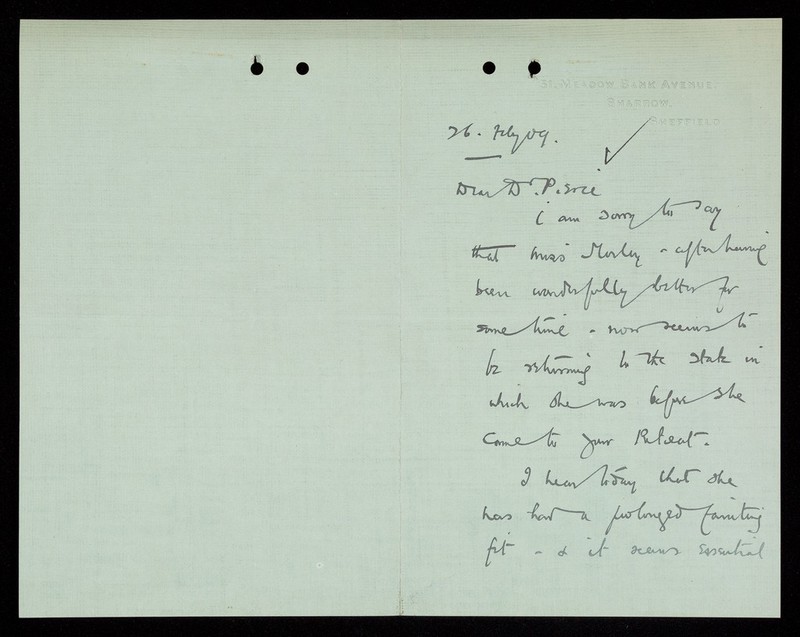 31, Meadow Bank Avenue,
Sharrow,
Sheffield.
26. Feby 09.
Dear Dr. Pierce
I am sorry to say
that Miss Morley - after having
been wonderfully better for
some time - now seems to
be returning to the state in
which she was before she
came to your Retreat.
I hear today that she
has had a prolonged fainting
fit - & it seems essential